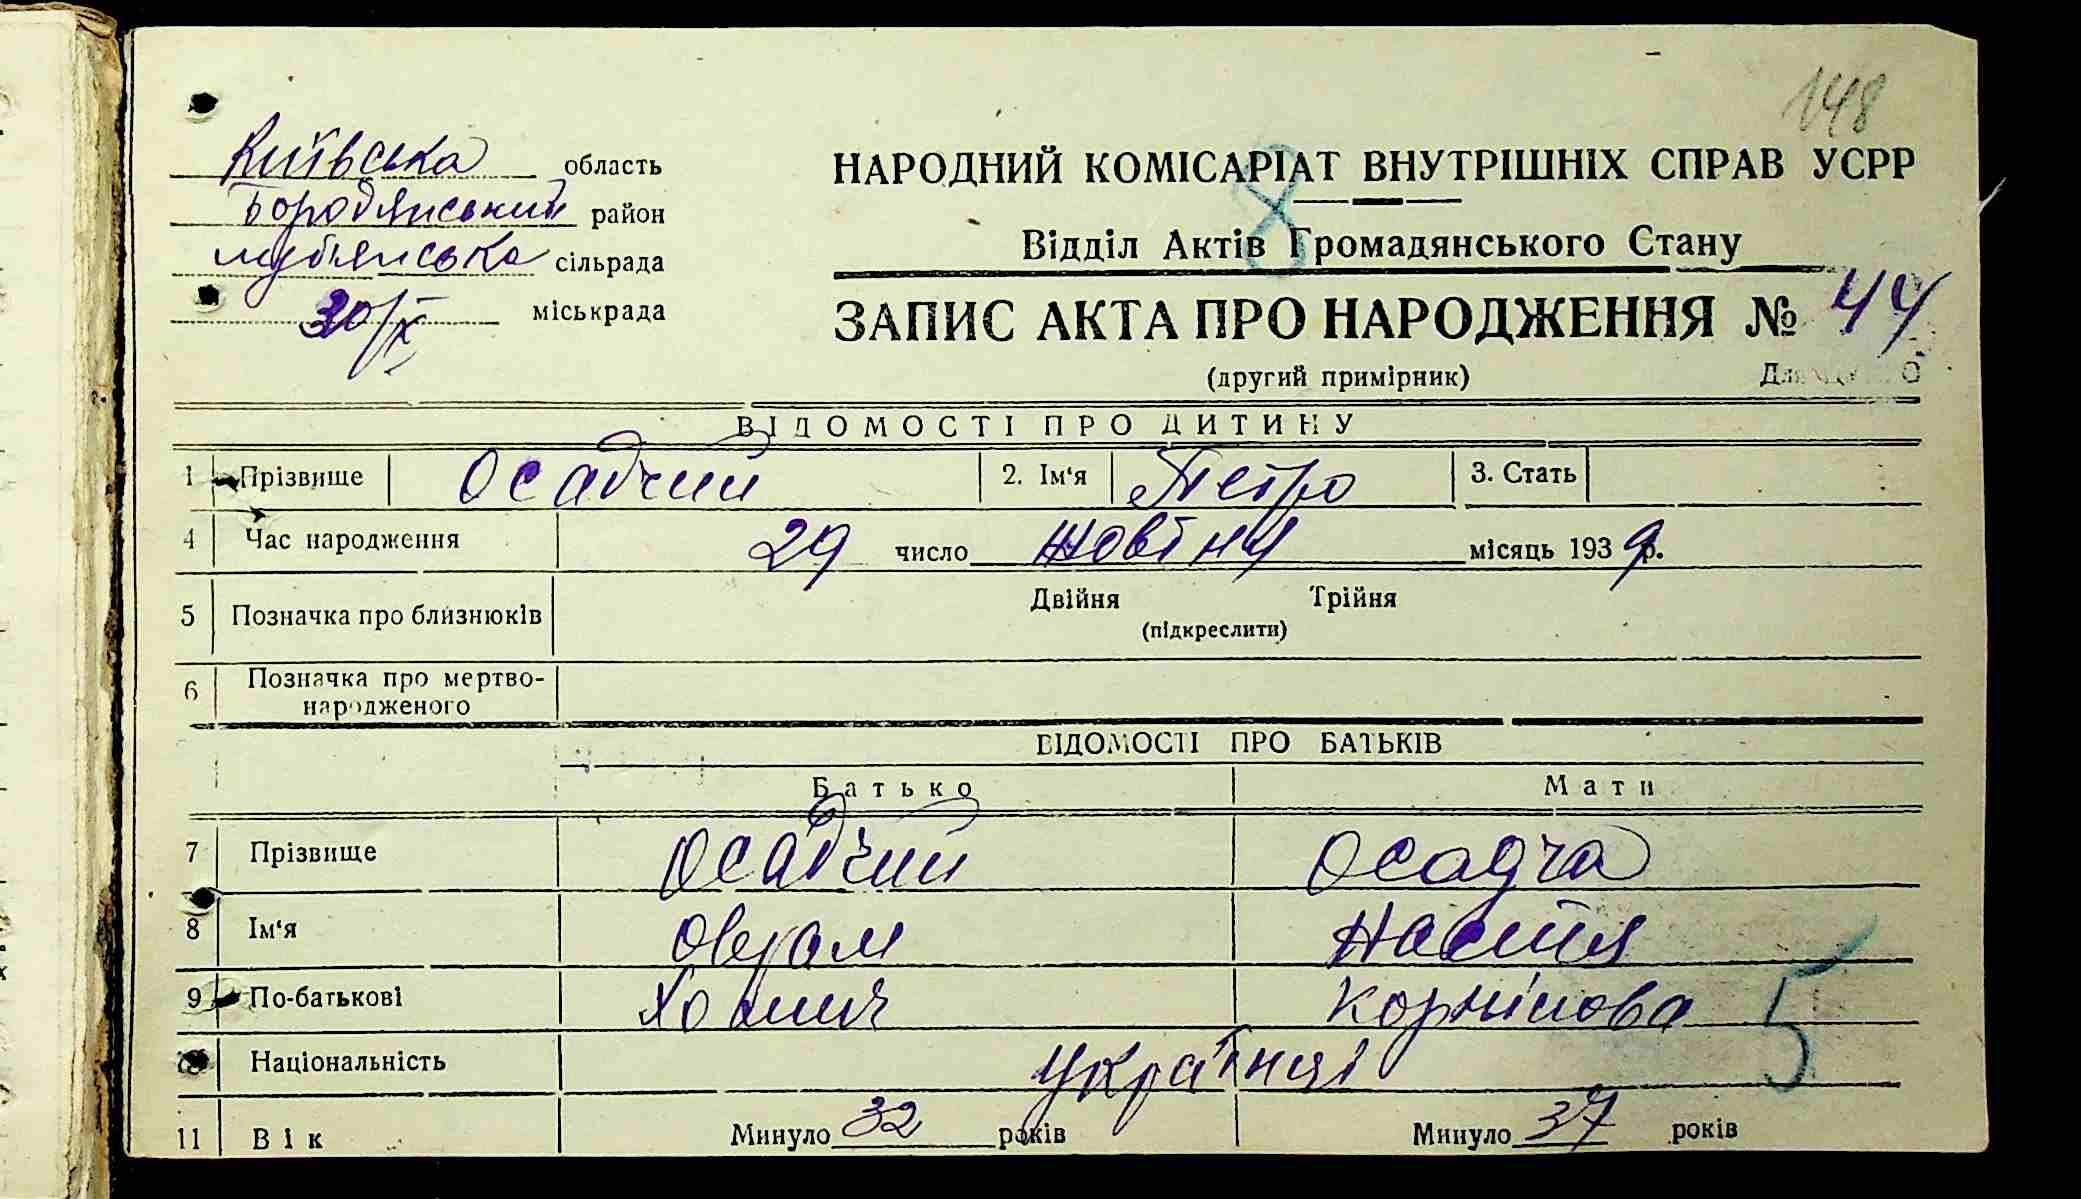 148
Київська область
Бородянський район
Мубіянська сільрада
30/X міськрада
НАРОДНИЙ КОМІСАРІАТ ВНУТРІШНІХ СПРАВ УСРР
8
Відділ Актів Громадянського Стану
ЗАПИС АКТА ПРО НАРОДЖЕННЯ № 44
(другий примірник)
ВІДОМОСТІ ПРО ДИТИНУ
1 Прізвище Осадчий 2. Ім'я Петро 3. Стать
4 Час народження 29 число Жовтня місяць 1939 р.
5 Позначка про близнюків Двійня Трійня
(підкреслити)
6 Позначка про мертво-
народженого
ВІДОМОСТІ ПРО БАТЬКІВ
Батько Мати
7 Прізвище Осадчий Осадча
8 Ім'я Оврам Настя
9 По-батькові Хомич Корніїова
5
Національність Українці
11 Вік Минуло 32 років Минуло 37 років